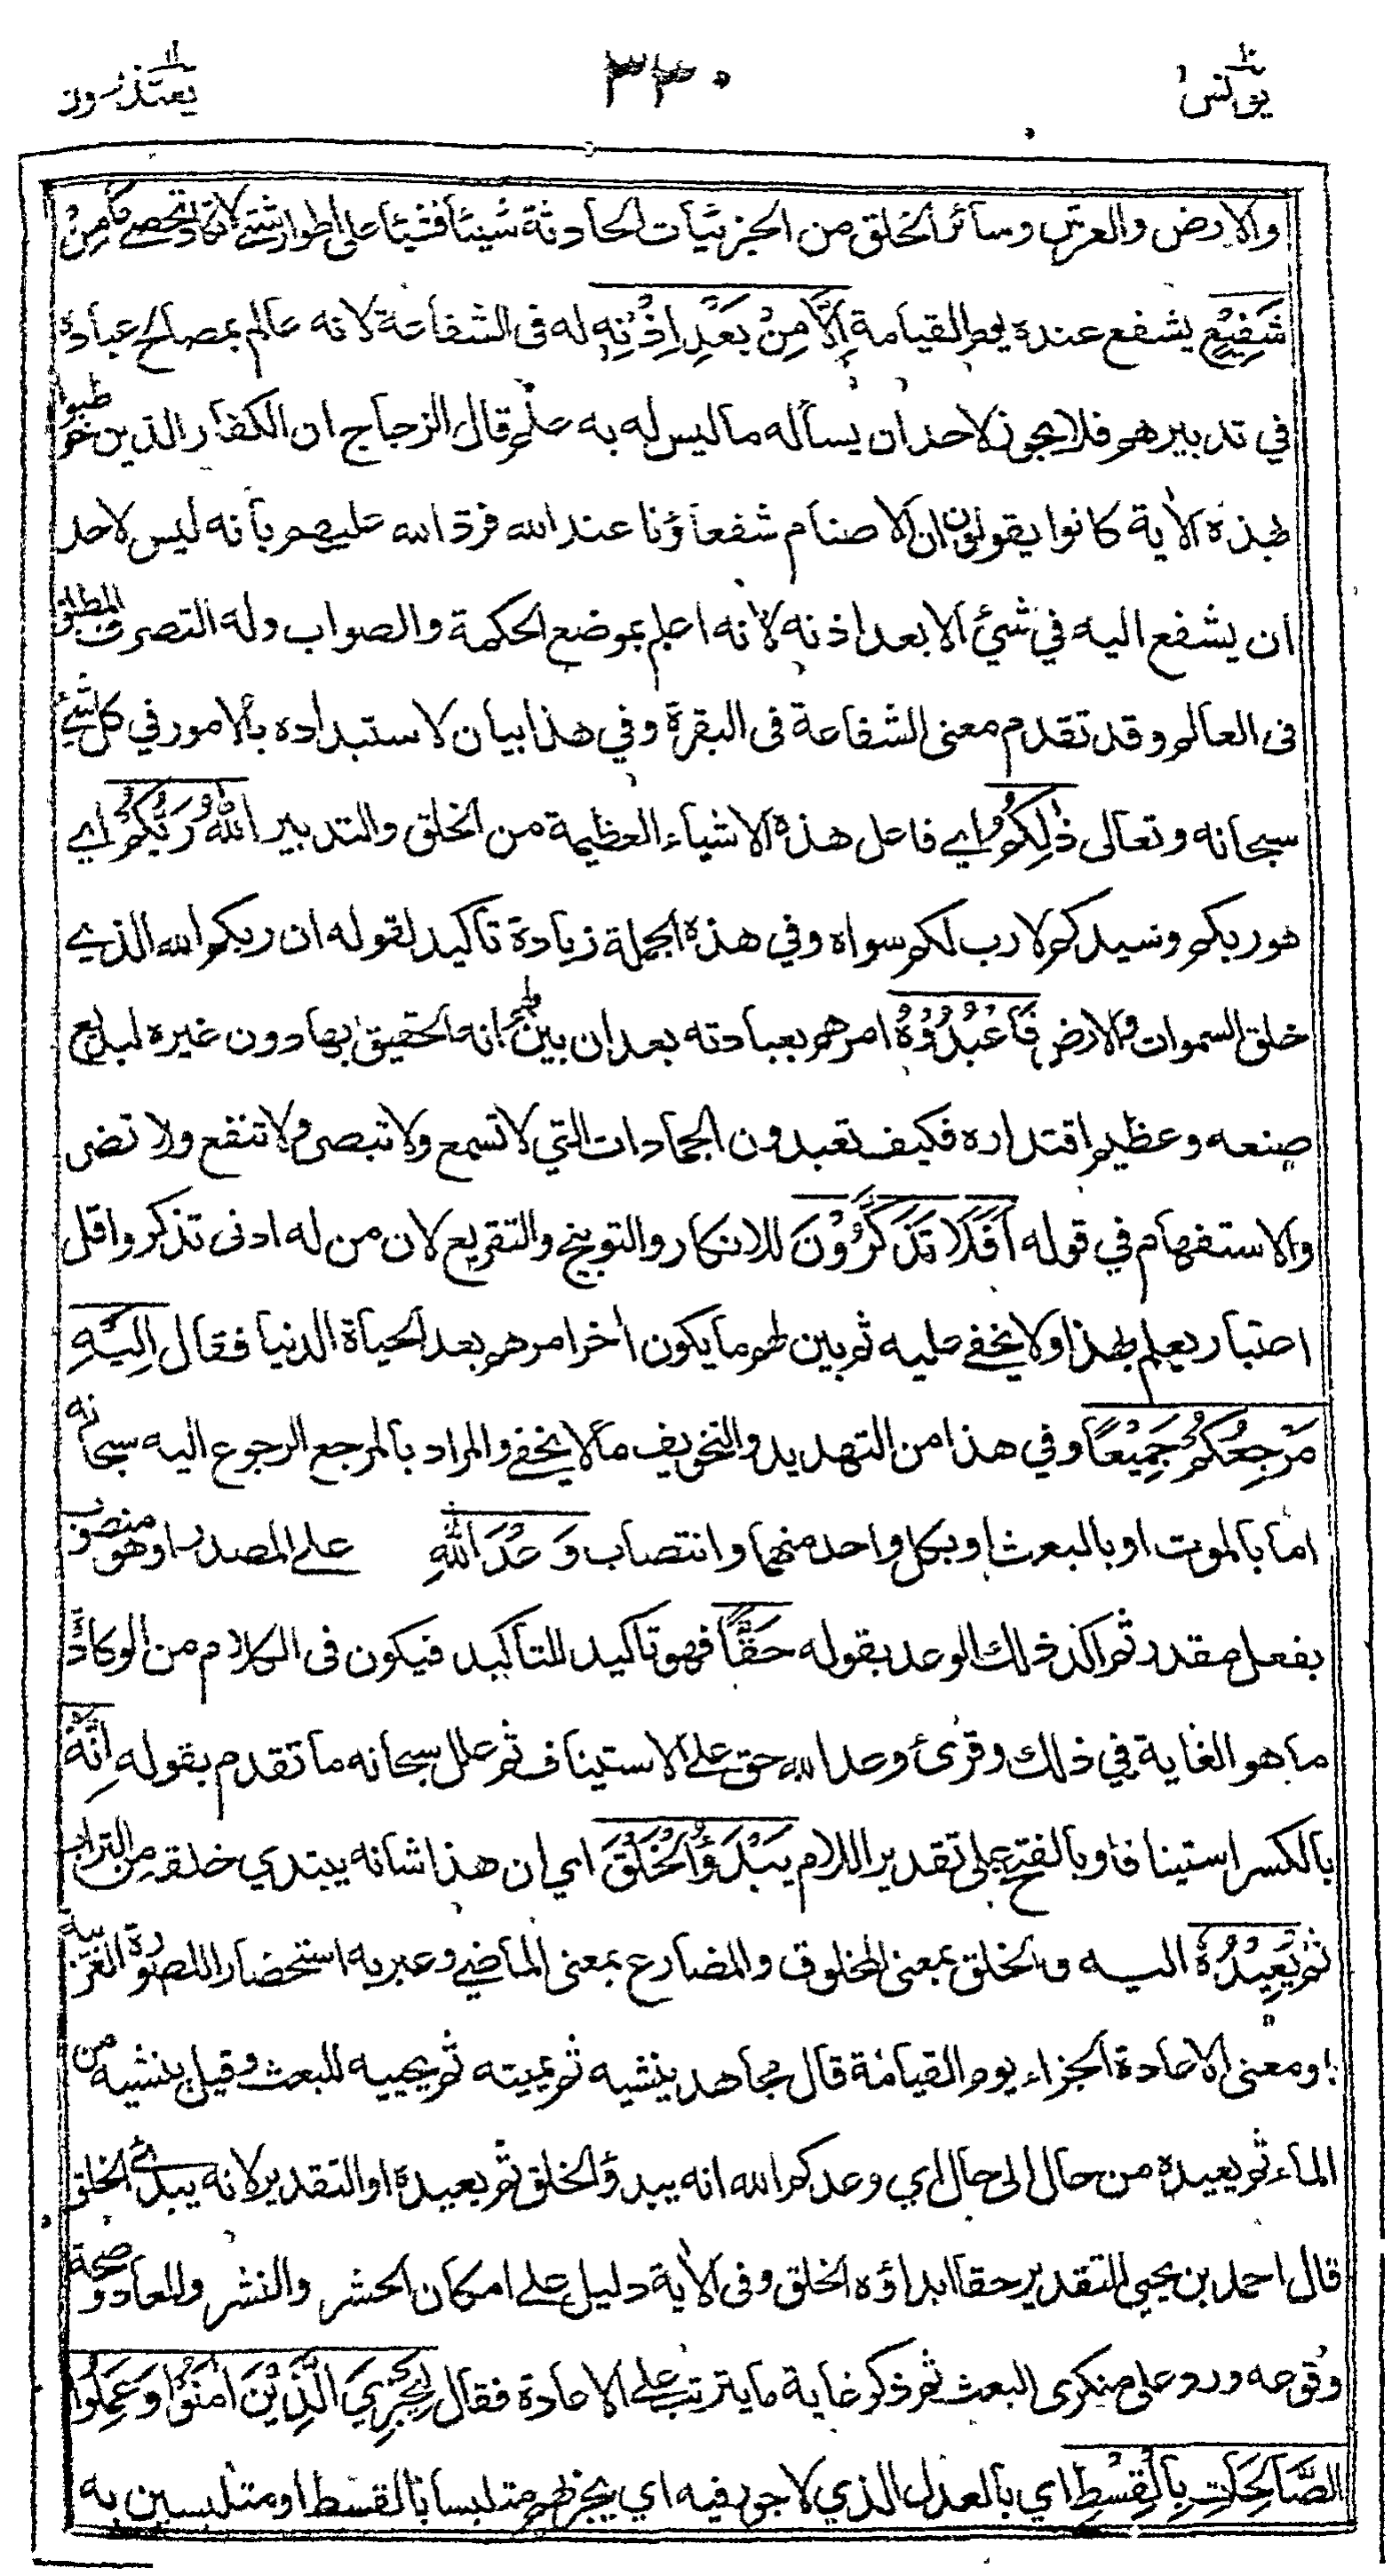 يونس ١٠
٣٣٠
يعتذرون ١١
والارض والعرش وسائر الخلق من الجزئيات الحادثة شيئا فشيئا على اطوار شتى لا تكاد تحصى مَا مِنْ
شَفِيْعٍ يشفع عنده يوم القيامة اِلَّا مِنْ بَعْدِ اِذْنِهٖ له فى الشفاعة لانه عالم بمصالح عباده
في تدبيرهم فلا يجوز لاحد ان يسأله ما ليس له به علم قال الزجاج ان الكفار الذين خوطبوا
بهذه الآية كانوا يقولون ان الاصنام شفعاؤنا عند الله فرد الله عليهم بأنه ليس لاحد
ان يشفع اليه في شئ الا بعد اذنه لانه اعلم بموضع الحكمة والصواب وله التصرف المطلق
فى العالم وقد تقدم معنى الشفاعة فى البقرة وفي هذا بيان لاستبداده بالامور في كل شئ
سبحانه وتعالى ذٰلِكُمُ اي فاعل هذه الاشياء العظيمة من الخلق والتدبير اللهُ رَبُّكُمْ اي
هو ربكم وسيدكم لا رب لكم سواه وفي هذه الجملة زيادة تأكيد لقوله ان ربكم الله الذي
خلق السموات والارض فَاعْبُدُوْهُ امرهم بعبادته بعد ان بين لهم انه الحقيق بها دون غيره لبديع
صنعه وعظيم اقتداره فكيف تعبدون الجمادات التي لا تسمع ولا تبصر ولا تنفع ولا تضر
والاستفهام في قوله اَفَلَا تَذَكَّرُوْنَ للانكار والتوبيخ والتقريع لان من له ادنى تذكر واقل
اعتبار يعلم بهذا ولا يخفى عليه ثم بين لهم ما يكون آخر امرهم بعد الحياة الدنيا فقال اِلَيْهِ
مَرْجِعُكُمْ جَمِيْعًا وفي هذا من التهديد والتخويف ما لا يخفى والمراد بالمرجع الرجوع اليه سبحانه
اما بالموت او بالبعث او بكل واحد منهما وانتصاب وَعْدَ اللهِ على المصدر او هو منصوب
بفعل مقدر ثم اكد ذلك الوعد بقوله حَقًّا فهو تاكيد للتأكيد فيكون فى الكلام من الوكادة
ما هو الغاية في ذلك وقرئ وعد الله حق على الاستيناف ثم علل سبحانه ما تقدم بقوله اِنَّهٗ
بالكسر استينافا وبالفتح على تقدير اللام يَبْدَؤُا الْخَلْقَ اي ان هذا شانه يبتدي خلقه من التراب
ثُمَّ يُعِيْدُهٗ اليه والخلق بمعنى المخلوق والمضارع بمعنى الماضي وعبر به استحضارا للصورة الغريبة
ومعنى الاعادة الجزاء يوم القيامة قال مجاهد ينشيه ثم يميته ثم يحييه للبعث وقيل ينشيه من
الماء ثم يعيده من حال الى حال اي وعدكم الله انه يبدؤ الخلق ثم يعيده او التقدير لانه يبدئ الخلق
قال احمد بن يحيى التقدير حقا ابداؤه الخلق وفى الآية دليل على امكان الحشر والنشر والمعاد وصحة
وقوعه ورد على منكرى البعث ثم ذكر غاية ما يترتب على الاعادة فقال لِيَجْزِيَ الَّذِيْنَ اٰمَنُوْا وَعَمِلُوا
الصَّالِحَاتِ بِالْقِسْطِ اي بالعدل الذي لا جور فيه اي يجزيهم متلبسا بالقسط او متلبسين به